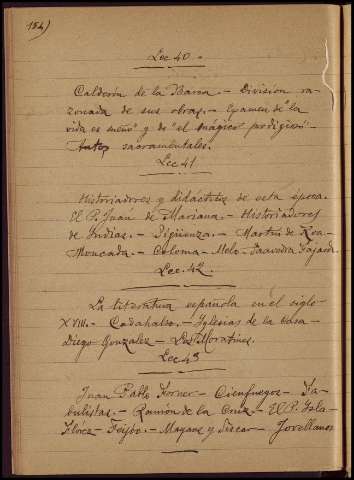 154)
Lec 40.
Calderón de la Barca. — División ra-
zonada de sus obras. — Examen de "la
vida es sueño" y de "el mágico prodigioso" —
Autos sacramentales.
Lec 41
Historiadores y didácticos de esta época.
El P. Juan de Mariana. — Historiadores
de Indias. — Sigüenza. — Martín de Roa —
Moncada. — Coloma. — Melo. — Saavedra Fajardo
Lec. 42.
La literatura española en el siglo
XVIII. — Cadahalso. — Iglesias de la Casa —
Diego González — Los Moratines.
Lec 43
Juan Pablo Forner — Cienfuegos — Fa-
bulistas. — Ramón de la Cruz. — El P. Isla —
Florez — Feijóo. — Mayans y Siscar — Jovellanos